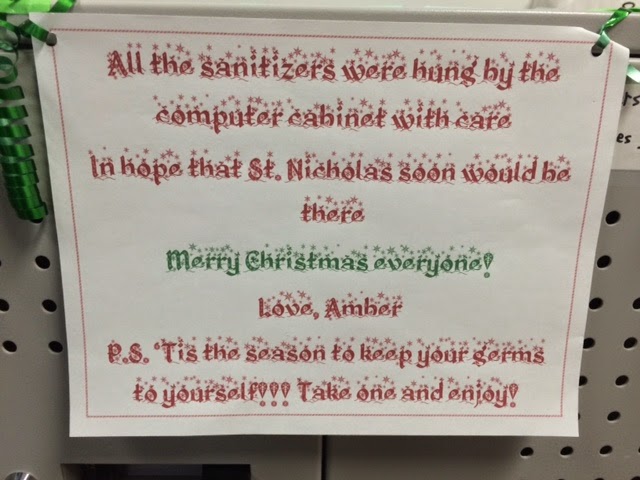 All the sanitizers were hung by the
computer cabinet with care
In hope that St. Nicholas soon would be
there
Merry Christmas everyone!
Love, Amber
P.S. 'Tis the season to keep your germs
to yourself!!! Take one and enjoy!